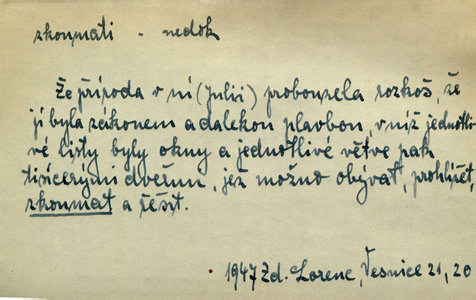 zkoumati - nedok
Že příroda v ní (Julii) probouzela rozkoš, že
jí byla zákonem a dalekou plavbou, v níž jednotli-
vé listy byly okny a jednotlivé větve pak
tisícerými dveřmi, jež možno obývat, prohlížet,
zkoumat a řešit.
1947 Zd. Lorenc, Vesnice 21, 20